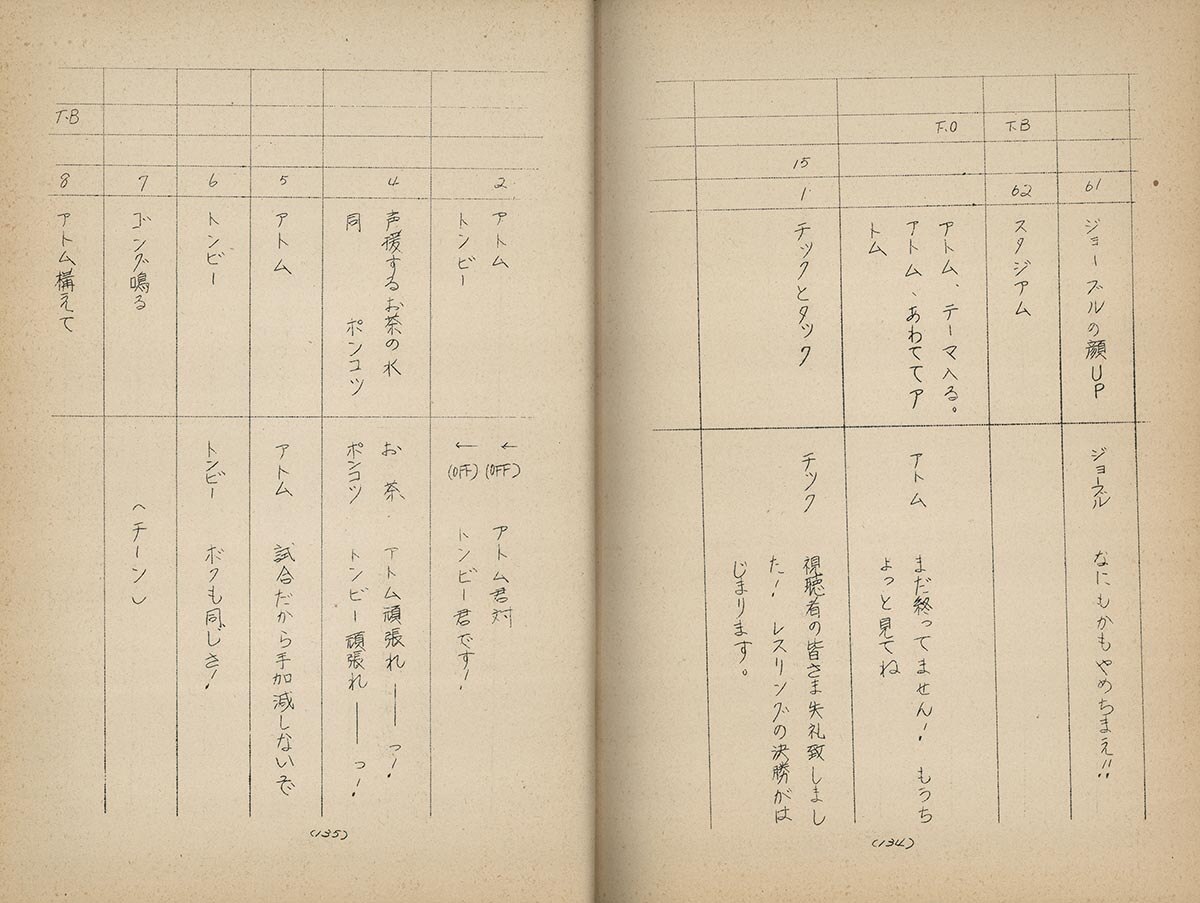 61
ジョーズルの顔UP
ジョーズル
なにもかもやめちまえ!!
T.B
62
スタジアム
F.O
アトム、テーマ入る。
アトム、あわててア
トム
アトム
まだ終ってません! もうち
ょっと見てね
15
1
チックとタック
チック
視聴者の皆さま失礼致しまし
た! レスリングの決勝がは
じまります。
(134)
2
アトム
トンビー
←(OFF)
アトム君対
←(OFF)
トンビー君です!
4
声援するお茶の水
同 ポンコツ
お茶.
アトム頑張れ――っ!
ポンコツ
トンビー頑張れ――っ!
5
アトム
アトム
試合だから手加減しないぞ
6
トンビー
トンビー
ボクも同じさ!
7
ゴング鳴る
〈チーン〉
T.B
8
アトム構えて
(135)